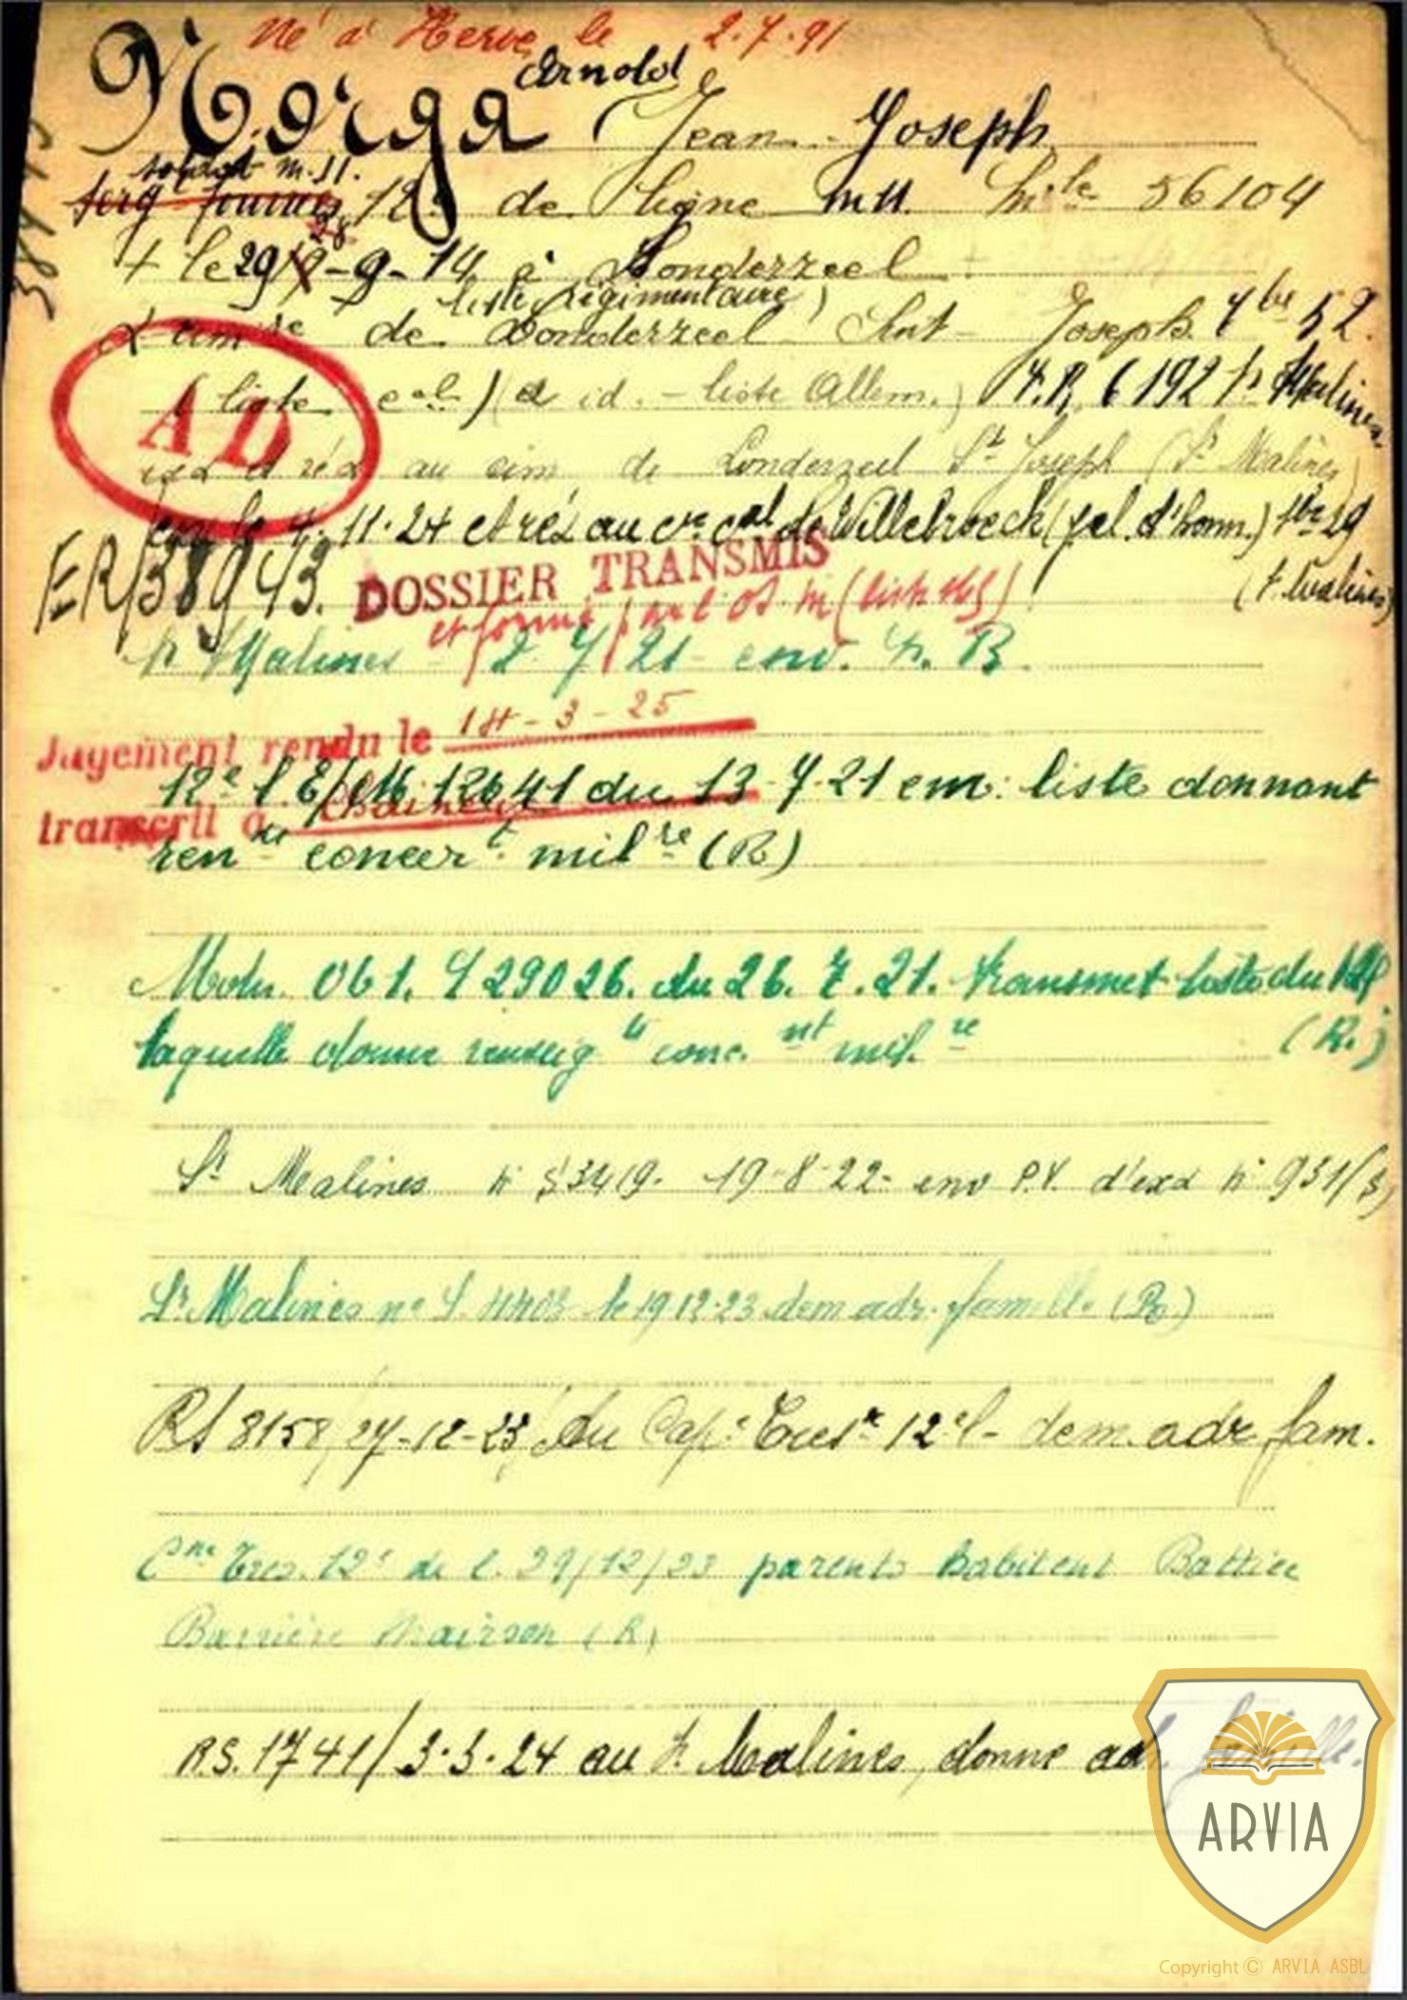 Né à Herve le 2.7.91
Arnold
Norga (Jean-Joseph
soldat m.11.
serg fourrier 12e de ligne m11. Mle 56104
28
+ le 29-9-14 à Londerzeel
(liste régimentaire)
cimre de Londerzeel Sint Joseph 7bre 52.
(liste cal) (d id. - liste Allem.) 6192 Malines
AD
exd et réd au cim de Londerzeel St Joseph (Sr Malines)
exh le 4.11.24 et réd au cre cal de Willebroeck (pel. d'honn.) tbe 29
(S. Malines)
ER/38943.
38943
DOSSIER TRANSMIS
et formé par l'OS m (liste
Sr Malines - 2/7/21 env. P. B.
Jugement rendu le 14-3-25
transcrit à
12e l E/M 12641 du 13-7-21 em: liste donnant
rente concert milre (R)
Motu. 061. S 29026. du 26.7.21. transmet liste du 12l
laquelle donne renseigts conc.nt mil.re (R.)
Sr Malines n° S 3419. 19-8-22- env P.V. d'exd n° 931/S)
Sr Malines n° S. 4403 le 19.12.23 dem adr. famille (R)
RS 8158/27-12-23/du Cape Tresr 12e l- dem. adr fam.
Cne Tres. 12e de l. 29/12/23 parents habitent Battice
Barrière Mairson (R)
R.S. 1741/3-3-24 au Sr Malines, donne adr. famille.
ARVIA
Copyright © ARVIA ASBL